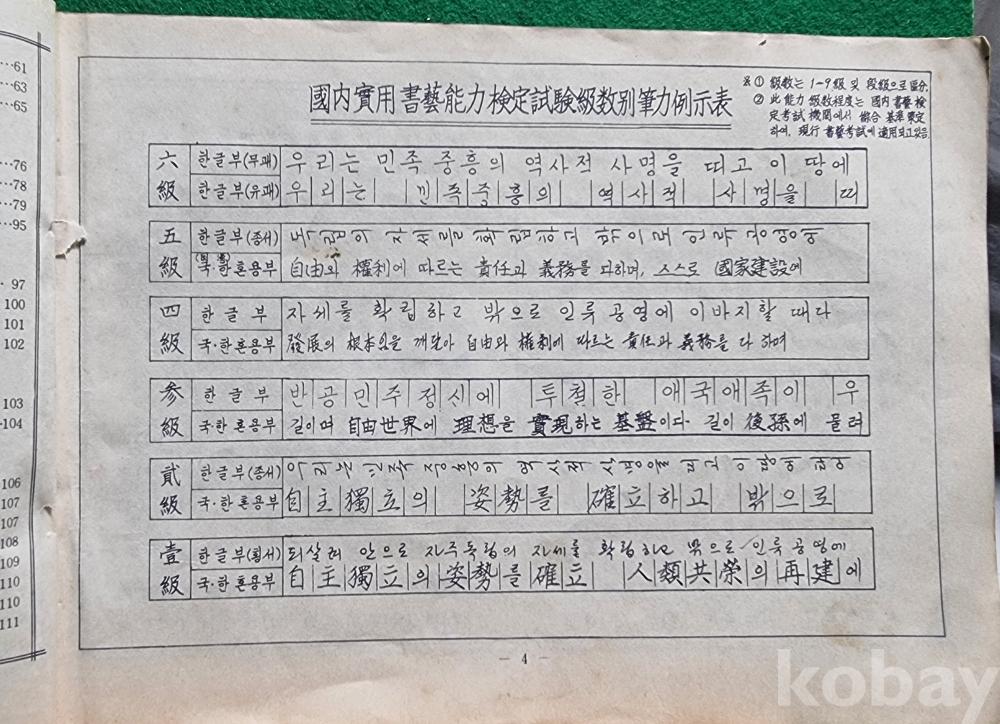 61
63
65
76
78
79
95
97
100
101
102
103
104
106
107
107
108
109
110
110
111
國内實用書藝能力検定試驗級数別筆力例示表
※① 級数는 1-9級 및 段級으로 區分.
② 此能力 級数程度는 國内書藝検
定考試機関에서 綜合 基準策定
하여, 現行 書藝考試에 適用되고있음
六級
한글부(무괘) 우리는 민족 중흥의 역사적 사명을 띠고 이 땅에
한글부(유괘) 우리는 민족중흥의 역사적 사명을 띠
五級
한글부(종서)
국·한혼용부 自由와 權利에 따르는 責任과 義務를 다하며, 스스로 國家建設에
四級
한글부 자세를 확립하고 밖으로 인류 공영에 이바지할 때다
국·한혼용부 發展의 根本임을 깨달아 自由와 權利에 따르는 責任과 義務를 다 하며
参級
한글부 반공민주정신에 투철한 애국애족이 우
국·한혼용부 길이며 自由世界에 理想을 實現하는 基盤이다. 길이 後孫에 물려
貳級
한글부(종서)
국·한혼용부 自主獨立의 姿勢를 確立하고 밖으로
壹級
한글부(횡서) 되살려 안으로 자주독립의 자세를 확립하고 밖으로 인류 공영에
국·한혼용부 自主獨立의姿勢를確立 人類共榮의再建에
- 4 -
kobay